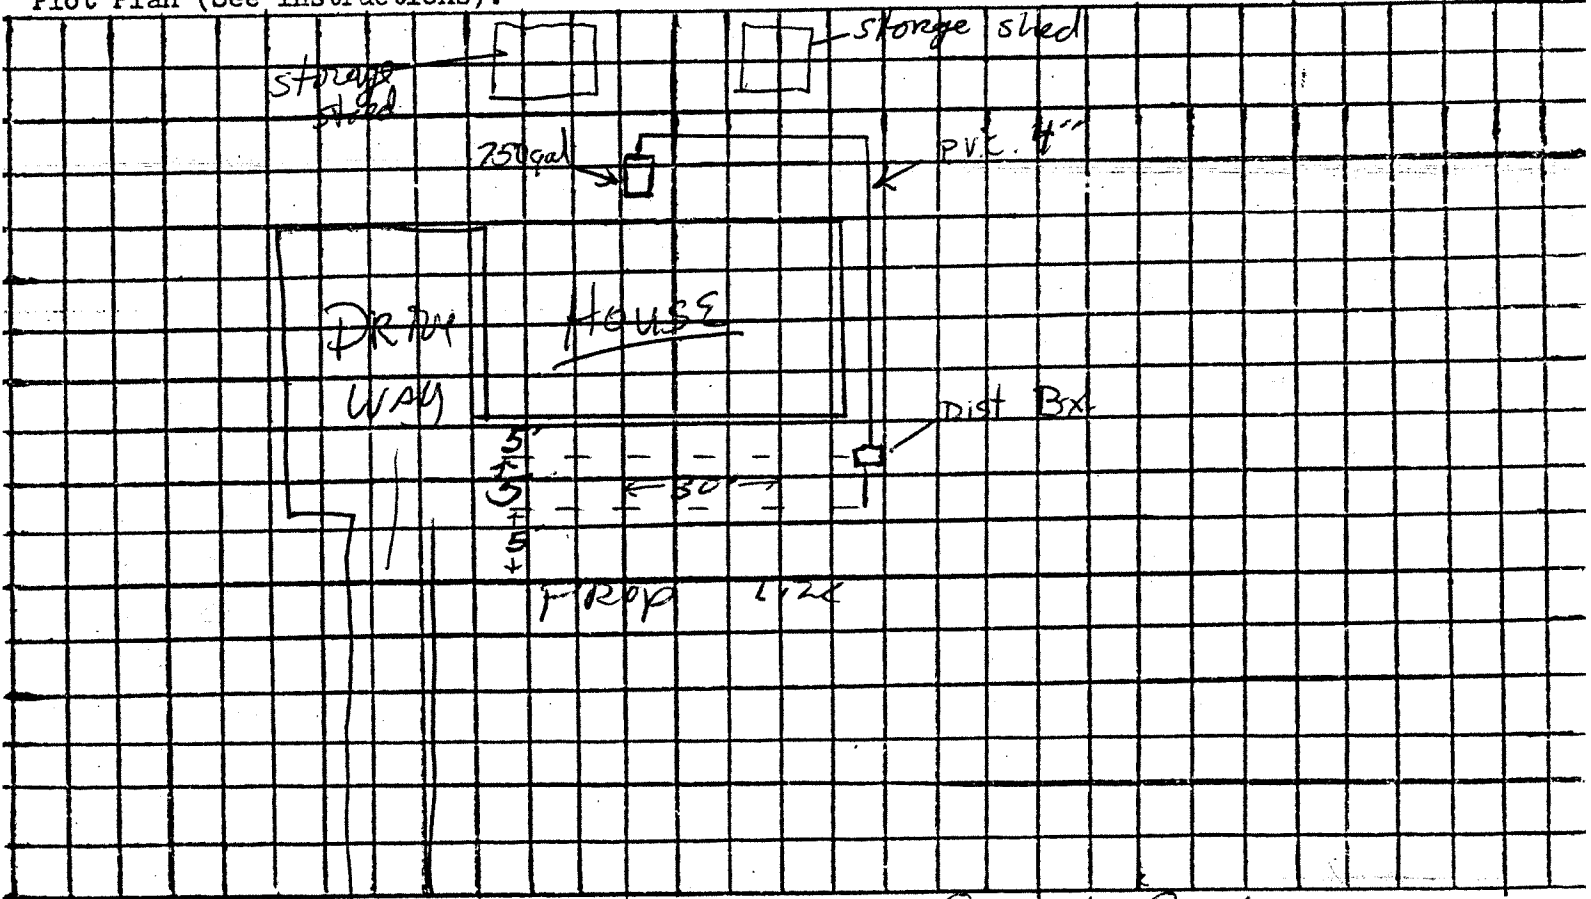 Plot Plan (See instructions):
storage shed
storage
shed
750gal
PVC. 4"
DRIVE
WAY
HOUSE
Dist Bx.
5'
5'
30'
5'
PROP LINE